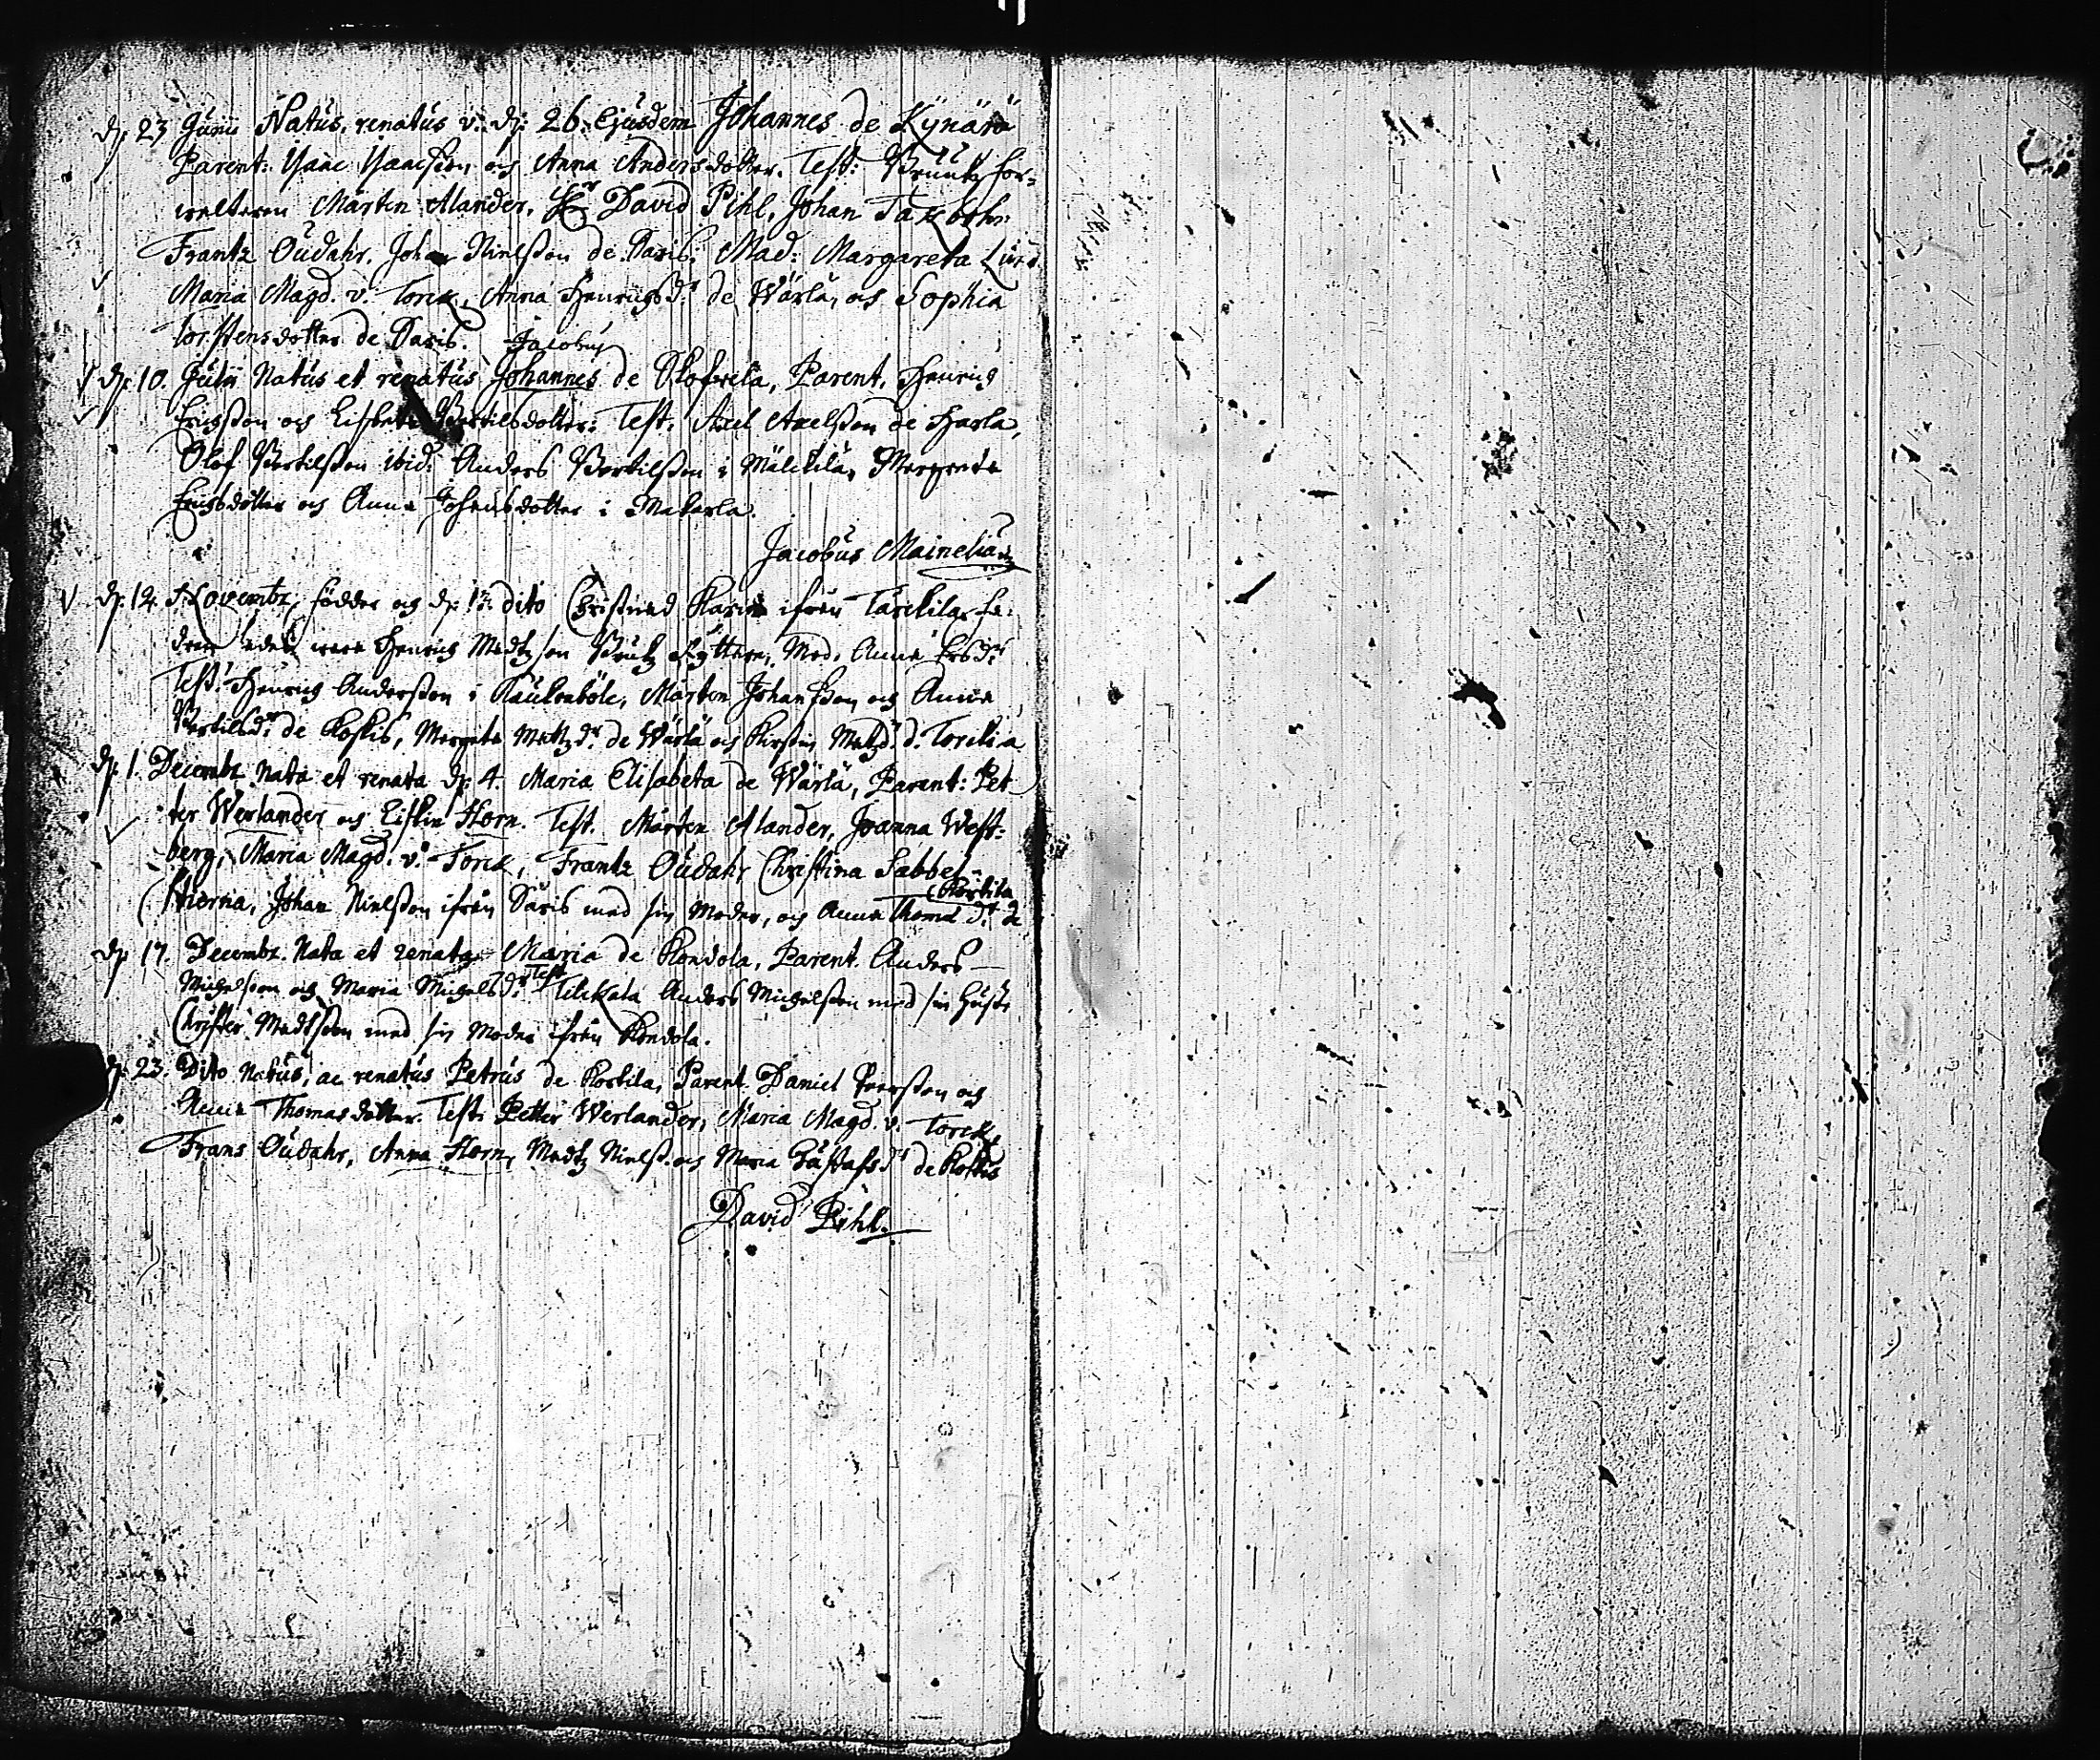 dj: 23 Junii Natus, renatus v. dj: 26. Ejusdem Johannes de Kynärä
Parent: Isaac Isaacsson och Anna Andersdotter. Test: Bruuks for-
walteren Mårten Alander, Hr David Pihl, Johan
Frantz Oudahr. Johan Nielsson de Saris. Mad: Margareta
Maria Magd. v. Torck, Anna Henrichsdr de Wärlä, och Sophia
Torstensdotter de Saris. Jacobus
dj: 10. Julii Natus et renatus Johannes de Olofzela, Parent. Henrich
Erichsson och Lisbeta Bertilsdotter. Test. Axel Axelsson de Harla,
Olof Bertilsson ibid. Anders Bertilsson i Mälckilä, Margreta
Erichsdotter och Anna Johansdotter i Makarla.
Jacobus Mainelius
dj: 12. Novembr. födder och dj: 13. dito Christnad Karin ifrån Tarckila, Fa-
dren Henrich Madtzson Mod. Anna
Test. Henrich Andersson i Kaukeböle, Mårten Johansson och Anna
Bertilsdr de Koskis, Margeta Mattzdr de Wärlä och Kirstin Matzdr d. Torckila
dj: 1. Decembr. Nata et renata dj: 4. Maria Elisabeta de Wärlä, Parent: Pet-
ter Werlander och Liskin Horn. Test. Mårten Alander, Joanna West-
berg, Maria Magd. v. Torck, Frantz Oudahr, Christina Sabbel-
Hierna, Johan Nielsson ifrån Saris med sin Moder, och Anna Thomædr de Koskila
dj: 17. Decembr. Nata et renata Maria de Kondola, Parent. Anders
Michelsson och Maria Michelsdr. Test. Anders Michelsson med sin Hustr
Christer Madtsson med sin Moder ifrån Kondola.
dj: 23. Dito Natus, ac renatus Petrus de Koskila, Parent. Daniel Peersson och
Anna Thomasdotter. Test. Petter Werlander, Maria Magd. v. Torck,
Frans Oudahr, Anna Horn, Madtz Nielss. och Maria Gustafsdr de Koskis
David Pihl.